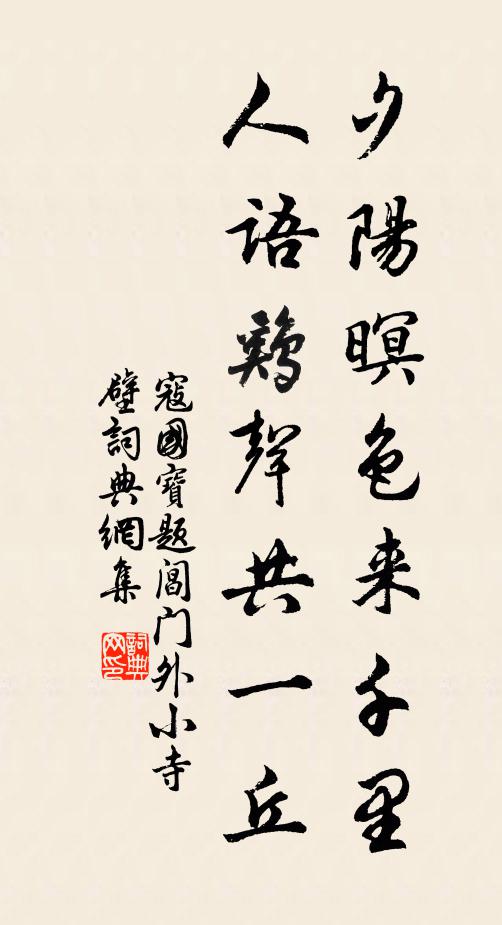 夕陽暝色来千里
人語鷄聲共一丘
寇國寶題閶门外小寺
壁詞典網集
詞典
网印